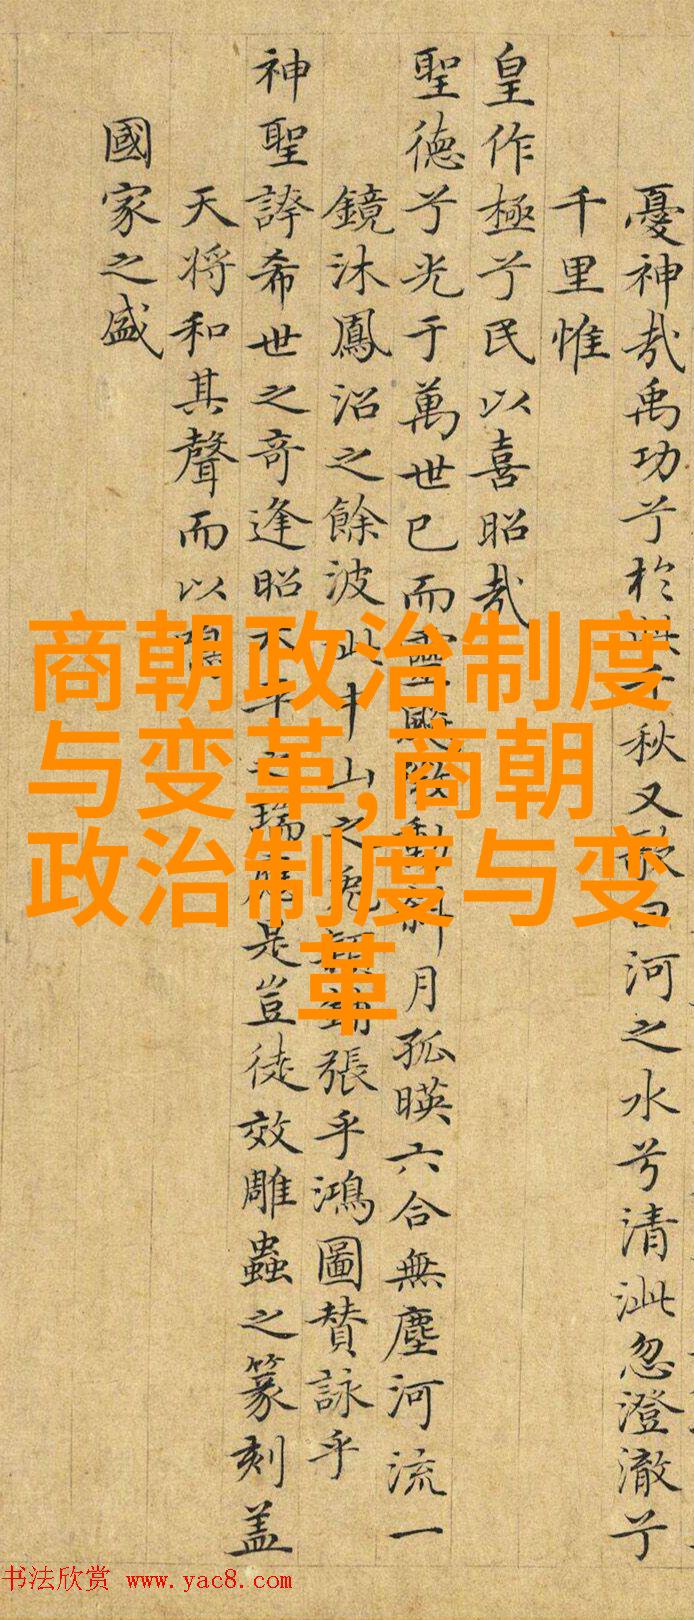 憂神哉禹功兮於千秋又歌曰河之水兮清泚忽澄澈兮
千里惟
皇作極兮民以喜昭哉
聖德兮光于萬世已而靈斜月孤暎六合無塵河流一
鏡沐鳳沼之餘波山之張乎鴻圖賛詠乎
神聖誇希世之奇逢昭平之瑞應是豈徒效雕蟲之篆刻盖
天将和其聲而以鳴
國家之盛
商朝政治制度
与变革,商朝
政治制度与变
革
书法欣赏 www.yac8.com